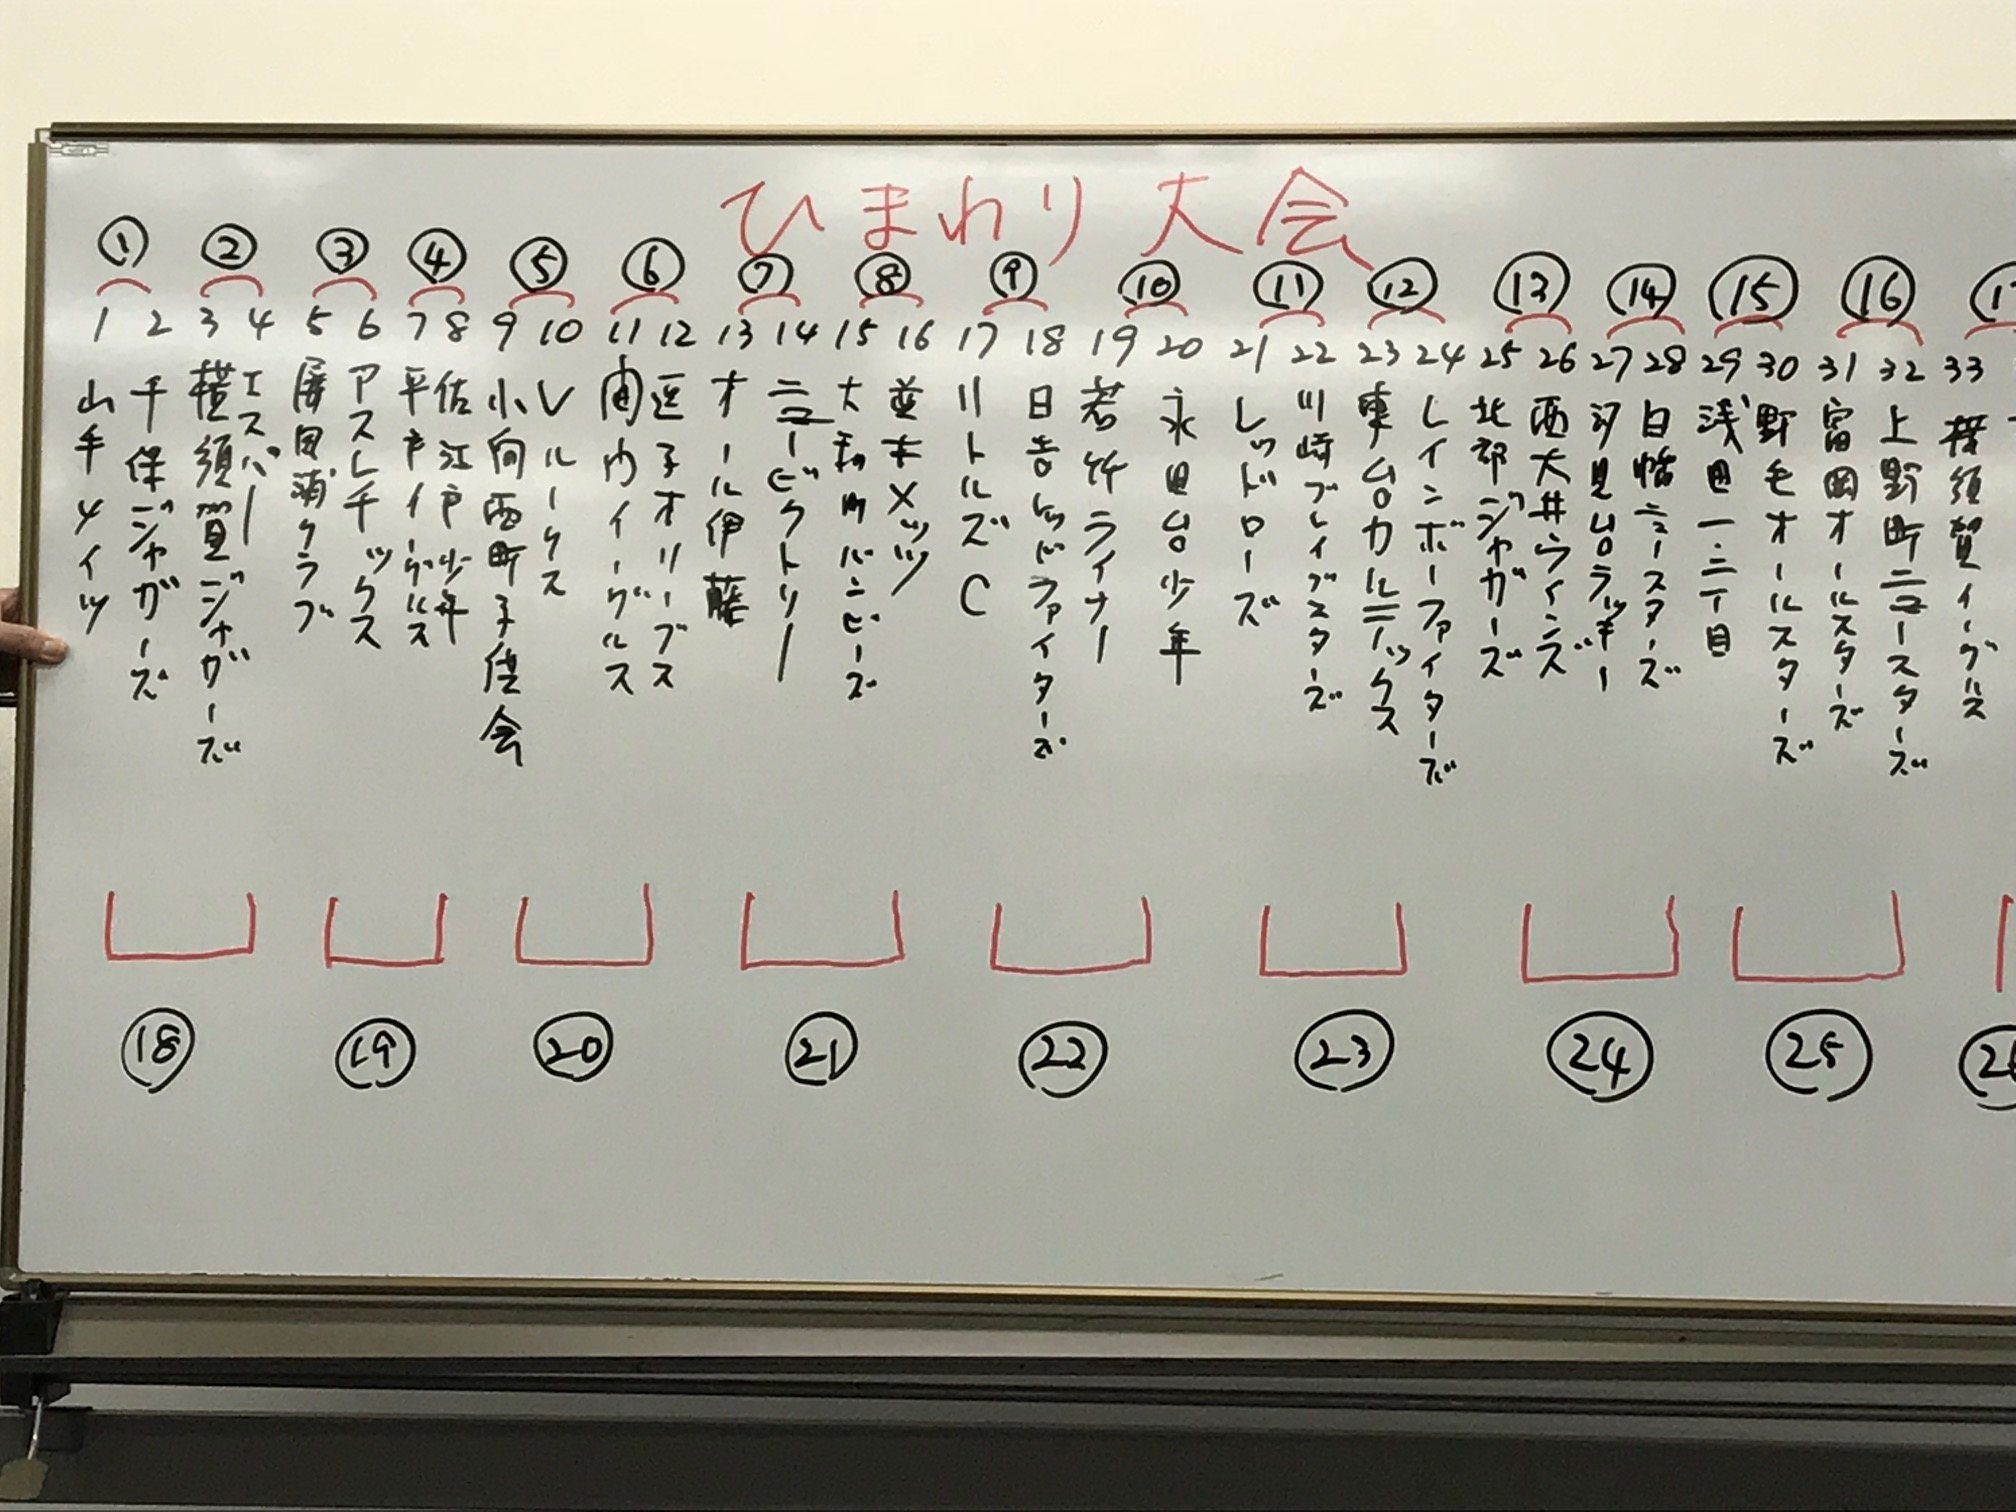 ひまわり大会
① ② ③ ④ ⑤ ⑥ ⑦ ⑧ ⑨ ⑩ ⑪ ⑫ ⑬ ⑭ ⑮ ⑯
1 2 3 4 5 6 7 8 9 10 11 12 13 14 15 16 17 18 19 20 21 22 23 24 25 26 27 28 29 30 31 32 33
山手メイツ
千保ジャガーズ
横須賀ジャガーズ
エスパー
屏風浦クラブ
アスレチックス
平戸イーグルス
佐江戸少年
小向西町子供会
Vルークス
宙内イーグルス
逗子オリーブス
オール伊藤
ニュービクトリー
大和町バンビーズ
並木メッツ
リトルズC
日吉レッドファイターズ
若竹ライナー
永田台少年
レッドローズ
川崎ブレイブスターズ
東台カルニックス
レインボーファイターズ
北部ジャガーズ
西大井ウィンズ
汐見台ラッキー
白幡ニュースターズ
浅田一・二丁目
野毛オールスターズ
富岡オールスターズ
上野町ニュースターズ
横須賀イーグルス
⑱ ⑲ ⑳ ㉑ ㉒ ㉓ ㉔ ㉕